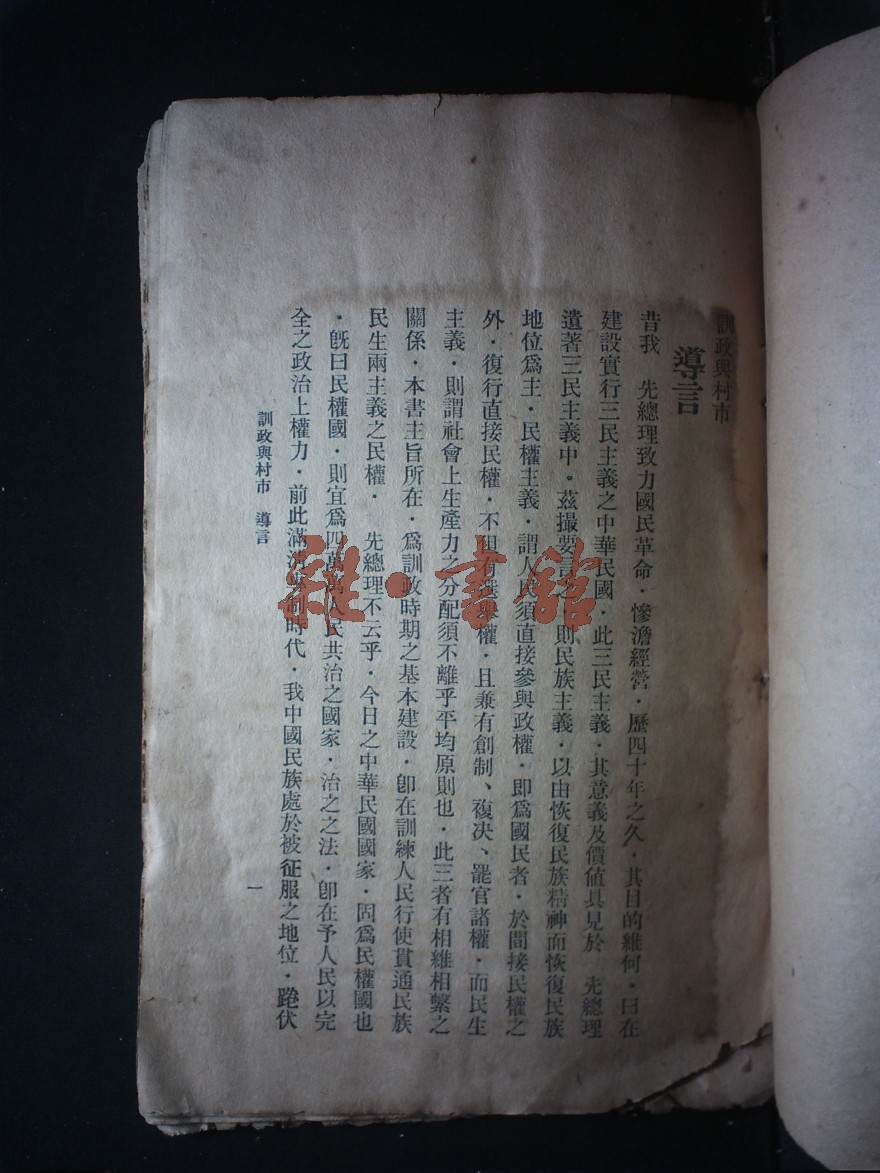 訓政與村市
導言
昔我　先總理致力國民革命・慘澹經營・歷四十年之久・其目的維何・曰在
建設實行三民主義之中華民國・此三民主義・其意義及價值具見於　先總理
遺著三民主義中・茲撮要言之・則民族主義・以由恢復民族精神而恢復民族
地位爲主・民權主義・謂人民須直接參與政權・即爲國民者・於間接民權之
外・復行直接民權・不但有選舉權・且兼有創制、複决、罷官諸權・而民生
主義・則謂社會上生產力之分配須不離乎平均原則也・此三者有相維相繫之
關係・本書主旨所在・爲訓政時期之基本建設・卽在訓練人民行使貫通民族
民生兩主義之民權・　先總理不云乎・今日之中華民國國家・固爲民權國也
・旣曰民權國・則宜爲四萬萬人民共治之國家・治之之法・卽在予人民以完
全之政治上權力・前此滿清專制時代・我中國民族處於被征服之地位・踡伏
訓政與村市　導言
一
雜・書館